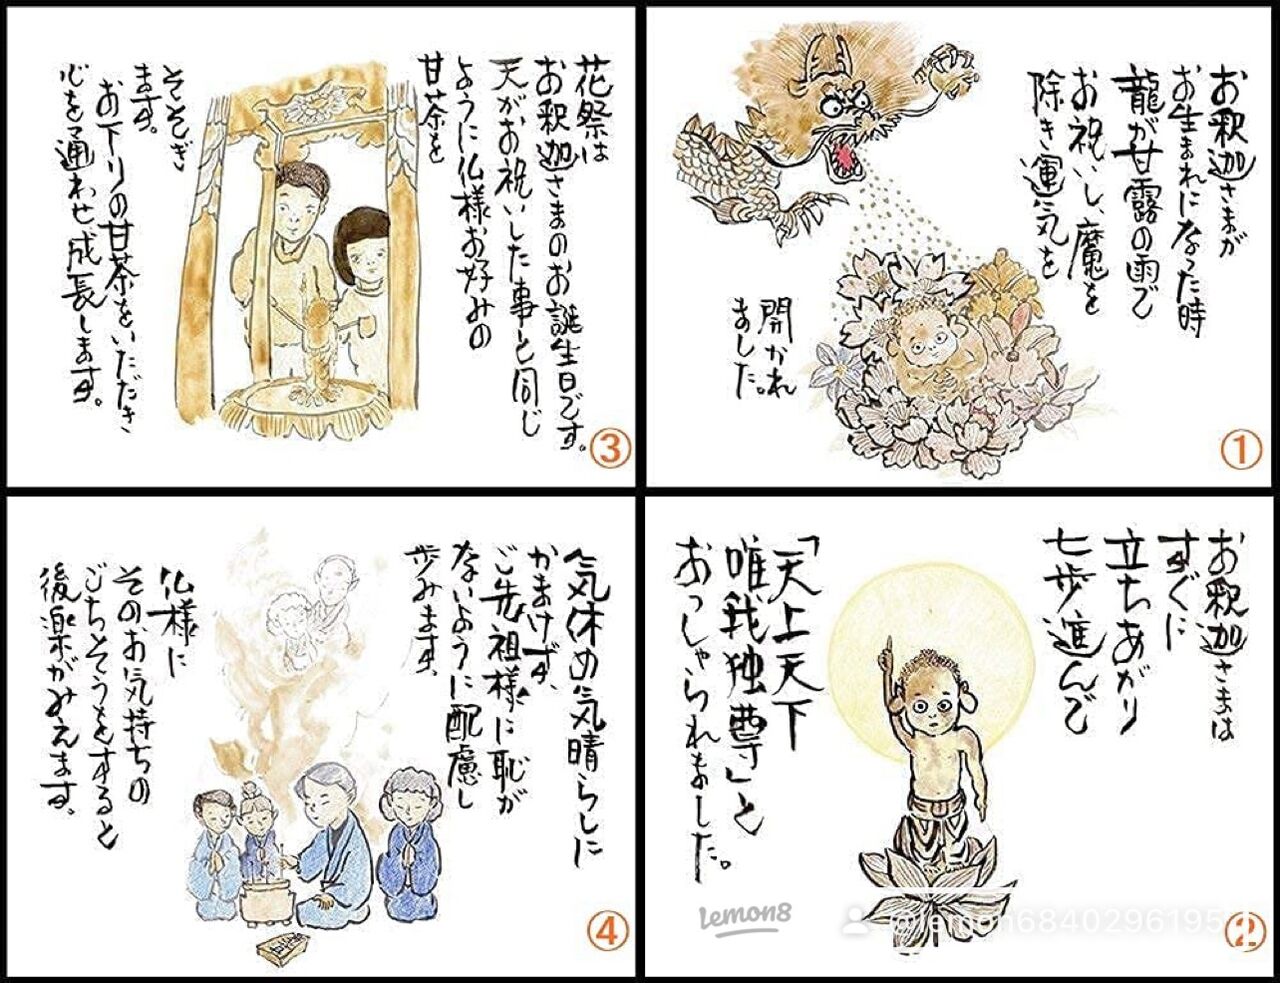 お釈迦さまが
お生まれになった時
龍が甘露の雨で
お祝いし、魔を
除き運気を
開かれ
ました。
①
お釈迦さまは
すぐに
立ちあがり
七歩進んで
「天上天下
唯我独尊」と
おっしゃられました。
②
花祭は
お釈迦さまのお誕生日です。
天がお祝いした事と同じ
ように仏様お好みの
甘茶を
そそぎ
ます。
お下りの甘茶をいただき
心を通わせ成長します。
③
気休め気晴らしに
かまけず、
ご先祖様に恥が
ないように配慮し
歩みます。
仏様に
そのお気持ちの
ごちそうをすると
後楽がみえます。
④
lemon8